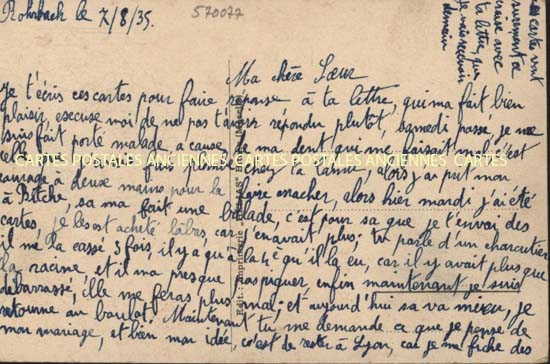 Rohrbach le 7/8/35.
570077
les cartes vont
surement se
croise avec
ta lettre, que
je vais recevoir
demain
Ma chère Sœur
Je t'écris ces cartes pour faire reponse à ta lettre, qui ma fait bien
plaisir, escuse moi de ne pas t'avoir répondu plutôt, samedi passé, je me
suis fait porté malade, a cause de ma dent, qui me faisait mal, c'est
celle chez ta Tante, alors j'ai put mon
courage à deux mains pour la faire arracher, alors hier mardi j'ai été
à Bitche, sa ma fait une balade, c'est pour sa que je t'envoi des
cartes, je les est acheté labas, car j'en avait plus; tu parle d'un charcutier
il me l'a cassé 3 fois, il y a qu'à la 4e qu'il la eu, car il y avait plus que
la racine, et il ma presque pas piquer, enfin maintenant je suis
débarrassé, elle me feras plus mal; et aujourd'hui sa va mieu, je
retourne au boulot. Maintenant tu me demande ce que je pense de
mon mariage, et bien mon idée, c'est de rester à Lyon, car je me fiche des
CARTES POSTALES ANCIENNES CARTES POSTALES ANCIENNES CARTES
Edit. Imprimerie